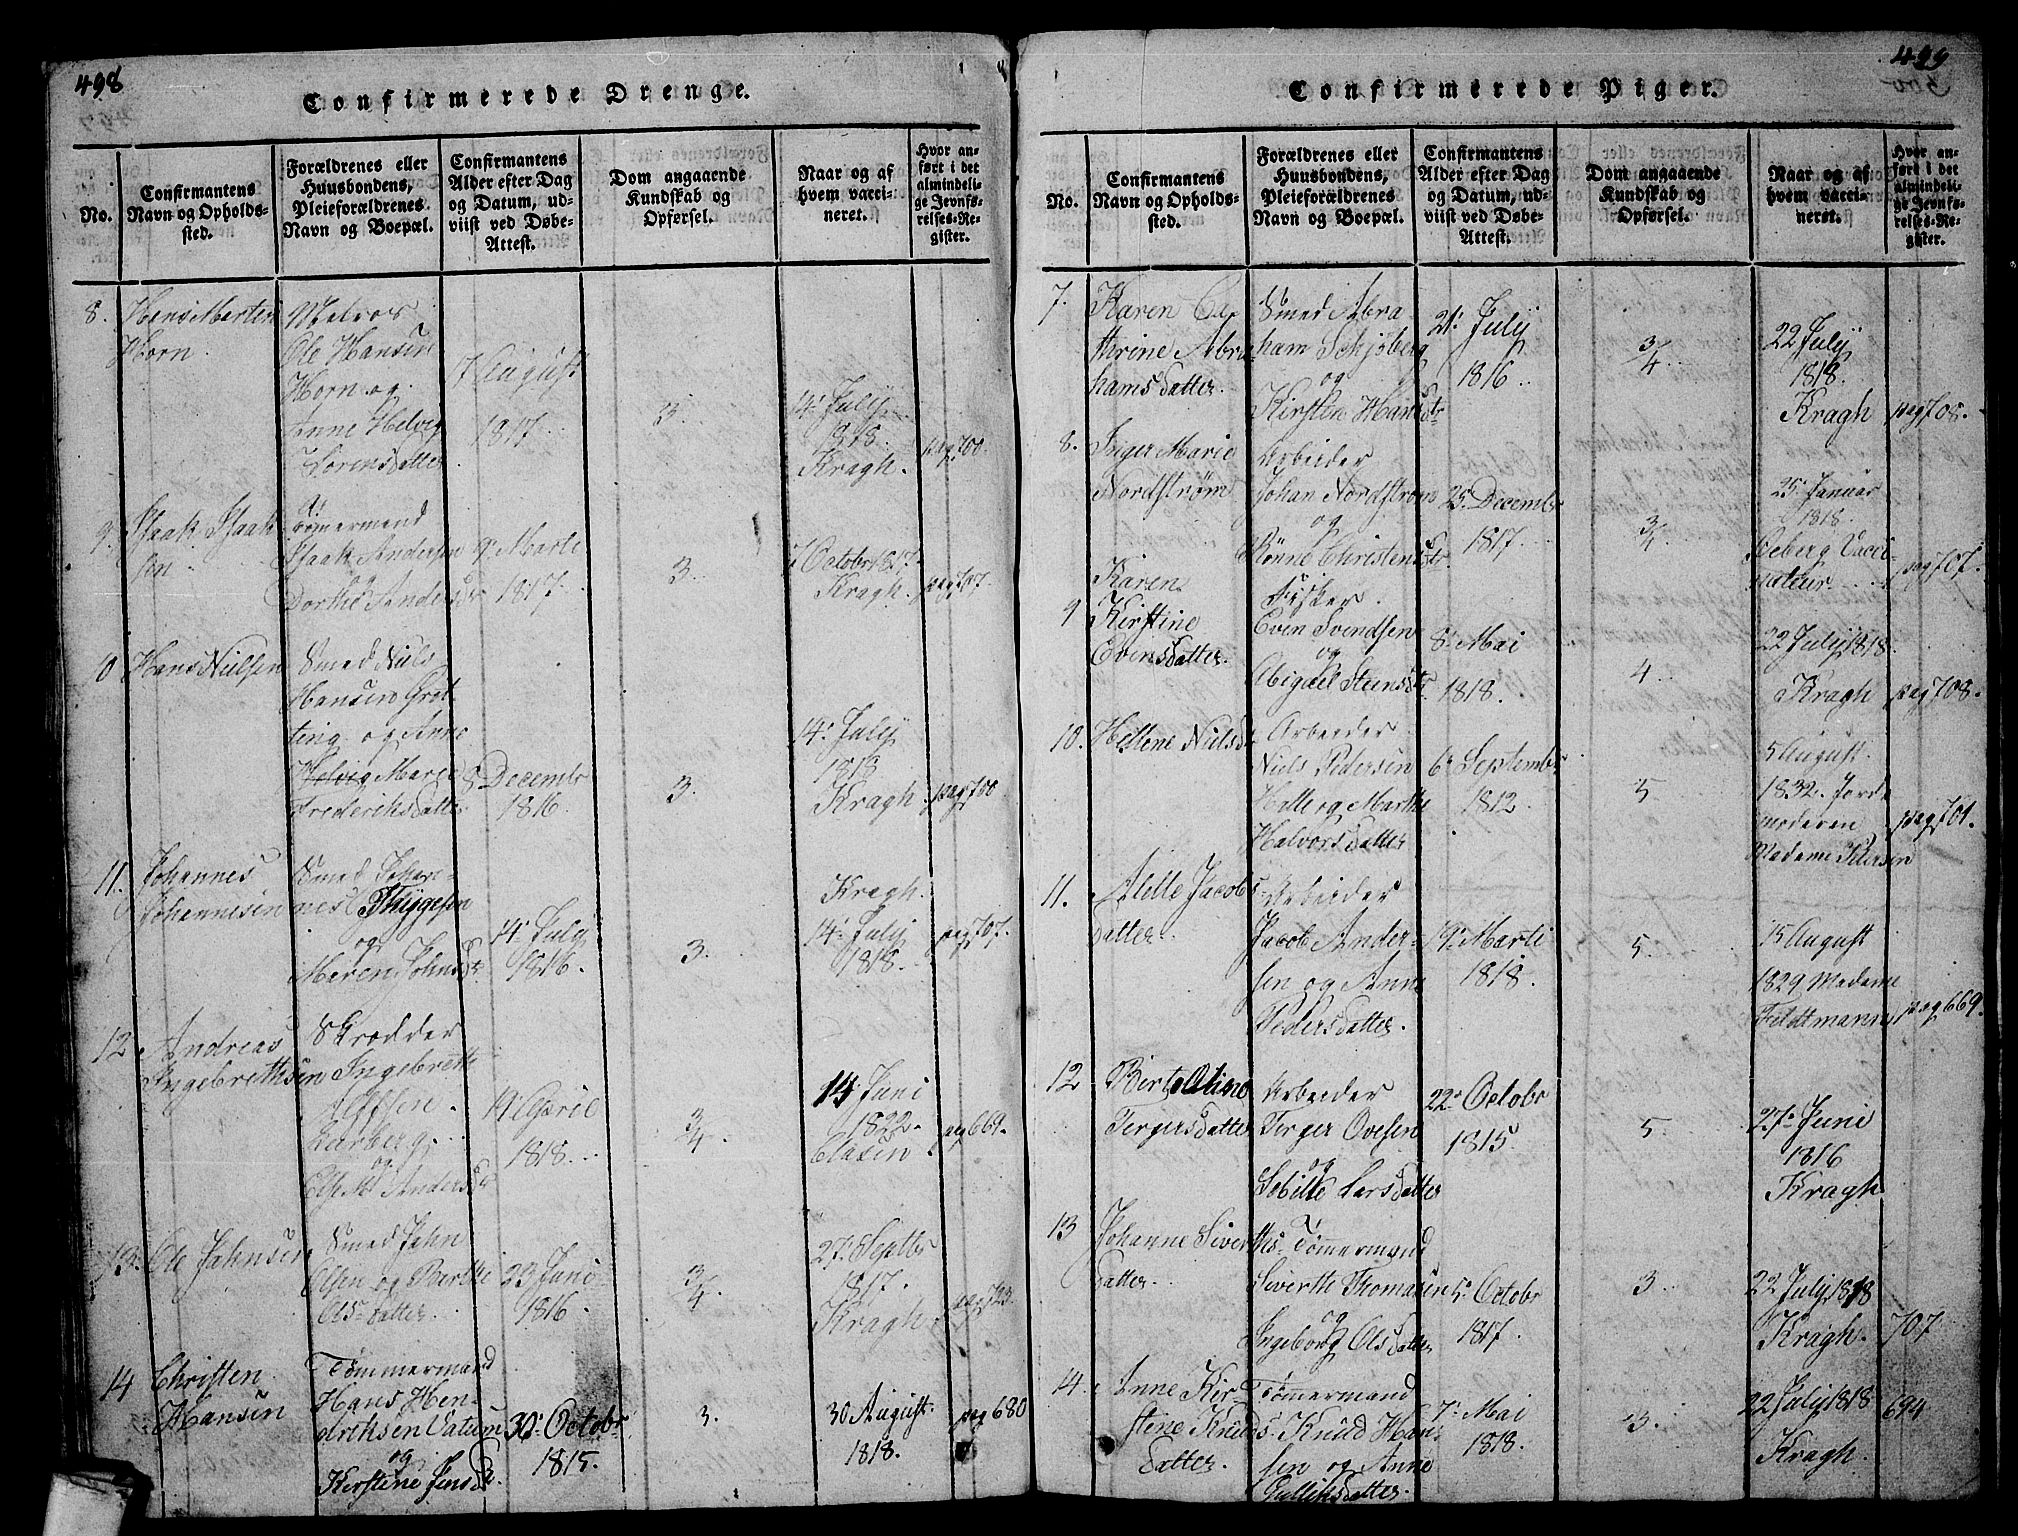 498
Confirmerede Drenge.
No.
Confirmantens
Navn og Opholds-
sted.
Forældrenes eller
Huusbondens,
Pleieforældrenes
Navn og Boepæl.
Confirmantens
Alder efter Dag
og Datum, ud-
viist ved Døbe-
Attest.
Dom angaaende
Kundskab og
Opførsel.
Naar og af
hvem vacci-
neret.
Hvor an-
ført i det
almindeli-
ge Jevnfø-
relses-Re-
gister.
8.
Hans Morten
Horn.
Matros
Ole Hansen
Horn og
Anne Helvig
Lorensdatter
17 August
1817
3.
14. July
1818.
Kragh.
pag 700.
9.
Isaak Isaak
sen.
Tømermand
Isaak Andersen
og
Dorthe Andersdr
9. Marti
1817.
3.
7 Octobr 1817.
Kragh.
pag 707.
10
Hans Nielsen
Smed Niels
Hansen Gret
ting og Anne
Helvig Marie
Frederiksdatter
8 Decembr
1816.
3.
14. July
1818
Kragh.
pag 700
11.
Johannes
Johannesen
Smed Johan-
nes Thygesen
og
Maren Johnsdr
14. July
1816.
3.
Kragh.
14. July
1818.
pag 707.
12
Andreas
Ingebrethsen
Skrædder
Ingebreth
Alffsen
Aarberg.
og
Else M. Andersdr
19. April
1818.
3/4.
14 Juni
1822.
Clasen
pag 669.
13.
Ole Jahnsen
Smed Jahn
Olsen og Berthe
Olsdatter
23 Juni
1816.
3/4
27. Septbr
1817.
Kragh
pag 723.
14
Christen
Hansen
Tømmermand
Hans Hen-
driksen Vatum
og
Kerstine Jensdr.
30. Octobr
1815.
3.
30 August.
1818.
pag 680
499
Confirmerede Piger.
No.
Confirmantens
Navn og Opholds-
sted.
Forældrenes eller
Huusbondens,
Pleieforældrenes
Navn og Boepæl.
Confirmantens
Alder efter Dag
og Datum, ud-
viist ved Døbe-
Attest.
Dom angaaende
Kundskab og
Opførsel.
Naar og af
hvem vacci-
neret.
Hvor an-
ført i det
almindeli-
ge Jevnfø-
relses-Re-
gister.
7.
Karen Ca
thrine Abra
hamsdatter
Smed Abra
ham Schjøberg
og
Kirsten Hansdr
21. July
1816.
3/4
22 July
1818.
Kragh
pag 708.
8.
Inger Marie
Nordstrøm
Arbeider
Johan Nordstrøm
og
Rønne Christensdr.
25. Decembr
1817.
3/4
25. Januar
1818.
Aeberg Vacci-
nateur.
pag 707.
9
Karen
Kirstine
Evensdatter
Fisker
Even Svendsen
og
Abigael Steensdr
8. Mai
1818.
4.
22 July 1818.
Kragh
pag 708.
10.
Hellene Nielsdr
Arbeider
Niels Pedersen
Holte og Marthe
Halvorsdatter
6. Septembr
1812.
5
5 August.
1832. Jorde
moderen
Madame Petersen
pag 701.
11.
Alette Jacobs-
datter.
Arbeider
Jacob Ander-
sen og Anne
Pedersdatter.
19. Marti
1818.
5.
15 August
1829 Madame
Feldtmann
pag 669.
12
Birte Oline
Tergersdatter
Arbeider
Terger Ovesen
og
Sebille Larsdatter
22. Octobr
1815.
5.
27. Juni
1816
Kragh
13
Johanne Siverths-
datter.
Tømmermand
Siverth Thomasen
og
Ingeborg Olsdatter
5. Octobr
1817.
3.
22 July 1818
Kragh.
707
14.
Anne Kir-
stine Knuds-
datter.
Tømmermand
Knud Han-
sen og Anne
Gulliksdatter.
7. Mai
1818.
3.
22 July 1818
Kragh.
694